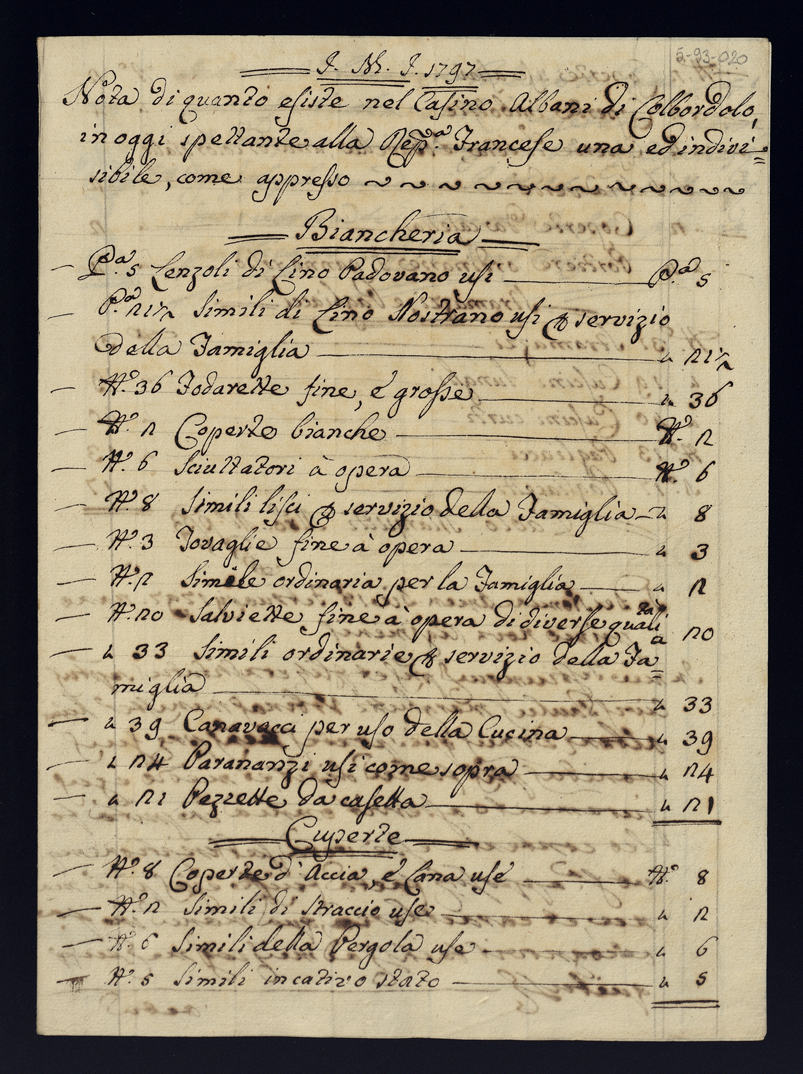 5-93-020
J. M. J. 1797
Nota di quanto esiste nel Casino Albani di Colbordolo,
in oggi spettante alla Rep.ª Francese una ed indivi=
sibile, come appresso
Biancheria
P.ª 5 Lenzoli di Lino Padovano usi P.ª 5
P.ª 21½ Simili di Lino Nostrano usi p servizio
della Famiglia " 21½
N.º 36 Fodarette fine, e grosse " 36
N.º 2 Coperte bianche N.º 2
N.º 6 Sciuttatori à opera N.º 6
N.º 8 Simili lisci p servizio della Famiglia " 8
N.º 3 Tovaglie fine à opera " 3
N.º 2 Simile ordinaria per la Famiglia " 2
N.º 20 Salviette fine à opera di diverse qualità " 20
" 33 Simili ordinarie p servizio della Fa=
miglia " 33
" 39 Canavacci per uso della Cucina " 39
" 24 Parananzi usi come sopra " 24
" 21 Pezzette da casetta " 21
Cuperte
N.º 8 Coperte d'Accia, e Lana use N.º 8
N.º 2 Simili di straccio use " 2
N.º 6 Simili della Pergola use " 6
N.º 5 Simili in cativo stato " 5